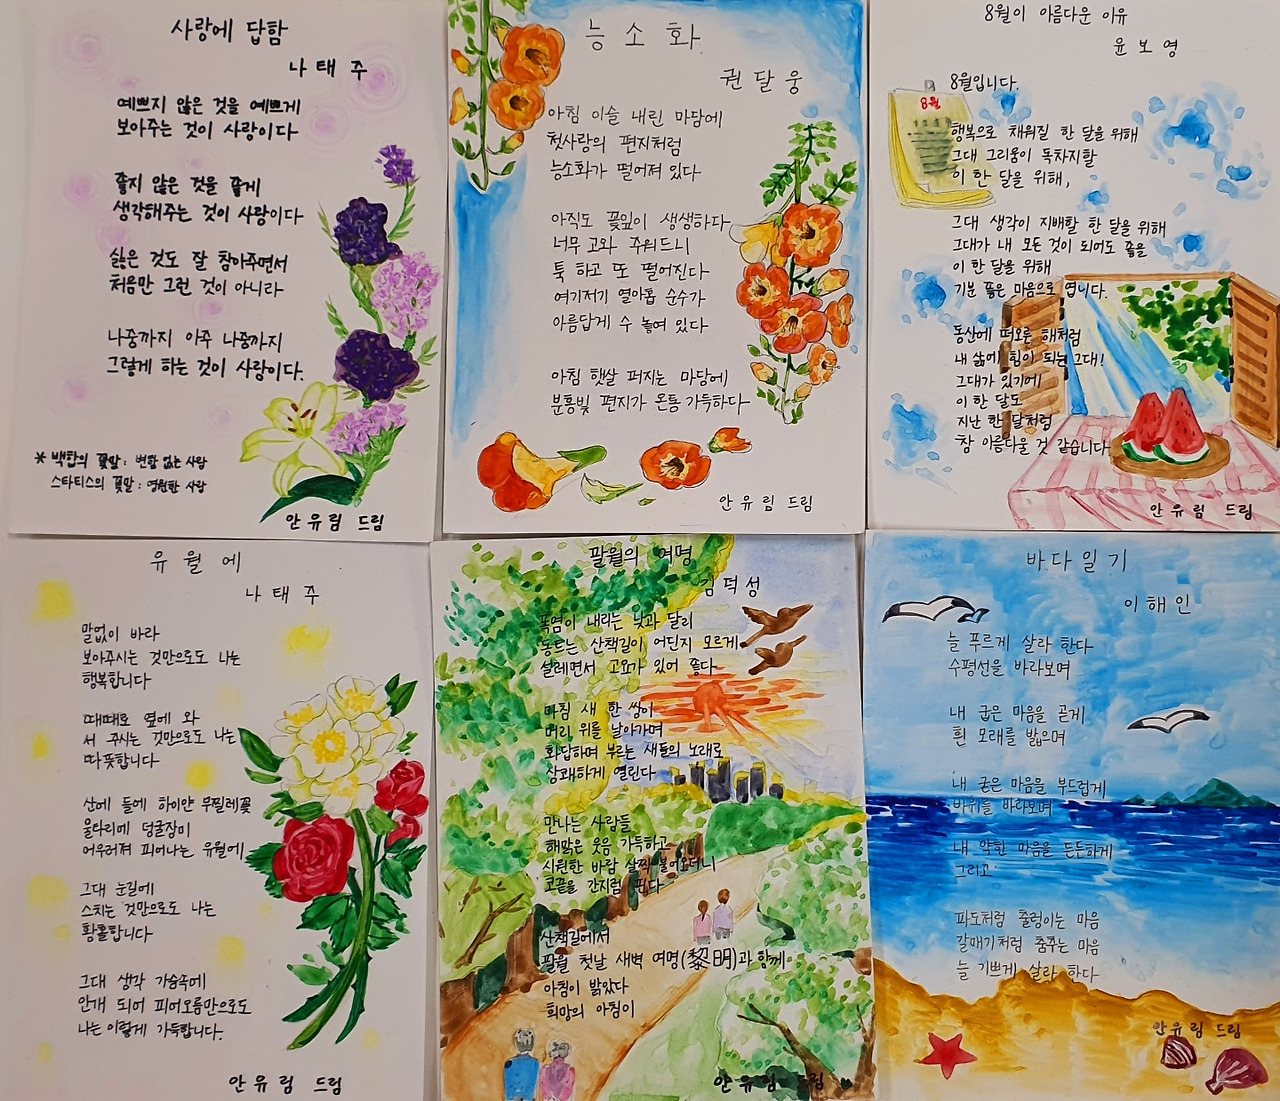 사랑에 답함
나 태 주
예쁘지 않은 것을 예쁘게
보아주는 것이 사랑이다
좋지 않은 것을 좋게
생각해주는 것이 사랑이다
싫은 것도 잘 참아주면서
처음만 그런 것이 아니라
나중까지 아주 나중까지
그렇게 하는 것이 사랑이다.
* 백합의 꽃말 : 변함 없는 사랑
스타티스의 꽃말 : 영원한 사랑
안 유 림 드림
능 소 화
권 달 웅
아침 이슬 내린 마당에
첫사랑의 편지처럼
능소화가 떨어져 있다
아직도 꽃잎이 생생하다
너무 고와 주워드니
툭 하고 또 떨어진다
여기저기 열아홉 순수가
아름답게 수 놓여 있다
아침 햇살 퍼지는 마당에
분홍빛 편지가 온통 가득하다
안 유 림 드림
8월이 아름다운 이유
윤 보 영
8월
8월입니다.
행복으로 채워질 한 달을 위해
그대 그리움이 독차지할
이 한 달을 위해,
그대 생각이 지배할 한 달을 위해
그대가 내 모든 것이 되어도 좋을
이 한 달을 위해
기분 좋은 마음으로 엽니다.
동산에 떠오른 해처럼
내 삶에 힘이 되는 그대!
그대가 있기에
이 한 달도
지난 한 달처럼
참 아름다울 것 같습니다
안 유 림 드림
유 월 에
나 태 주
말없이 바라
보아주시는 것만으로도 나는
행복합니다
때때로 옆에 와
서 주시는 것만으로도 나는
따뜻합니다
산에 들에 하이얀 무찔레꽃
울타리에 덩굴장미
어우러져 피어나는 유월에
그대 눈길에
스치는 것만으로도 나는
황홀합니다
그대 생각 가슴속에
안개 되어 피어오름만으로도
나는 이렇게 가득합니다.
안 유 림 드림
팔월의 여명
김 덕 성
폭염이 내리는 낮과 달리
동트는 산책길이 어딘지 모르게
설레면서 고요가 있어 좋다
아침 새 한 쌍이
머리 위를 날아가며
화답하며 부르는 새들의 노래로
상쾌하게 열린다
만나는 사람들
해맑은 웃음 가득하고
시원한 바람 살짝 불어오더니
코끝을 간지럼 핀다
산책길에서
팔월 첫날 새벽 여명(黎明)과 함께
아침이 밝았다
희망의 아침이
안 유 림 드림
바 다 일 기
이 해 인
늘 푸르게 살라 한다
수평선을 바라보며
내 굽은 마음을 곧게
흰 모래를 밟으며
내 굳은 마음을 부드럽게
바위를 바라보며
내 약한 마음을 든든하게
그리고
파도처럼 출렁이는 마음
갈매기처럼 춤추는 마음
늘 기쁘게 살라 한다
안 유 림 드림